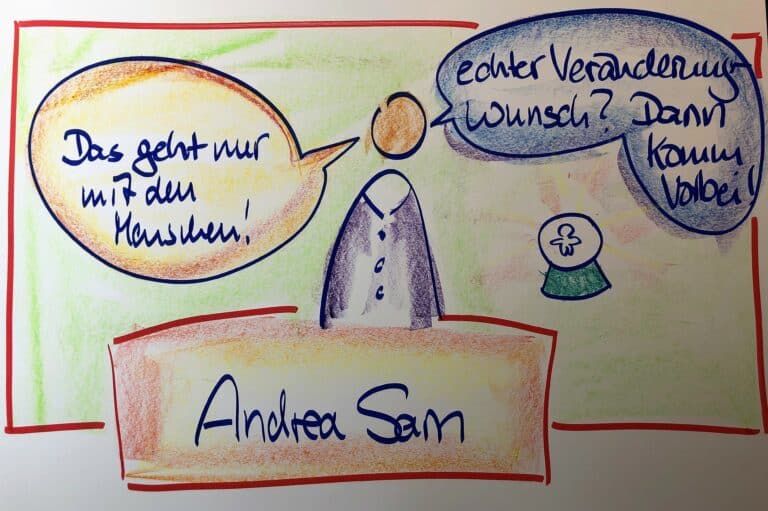 Das geht nur
mit den
Menschen!
echter Veränderung-
wunsch? Dann
komm
vorbei!
Andrea Sam